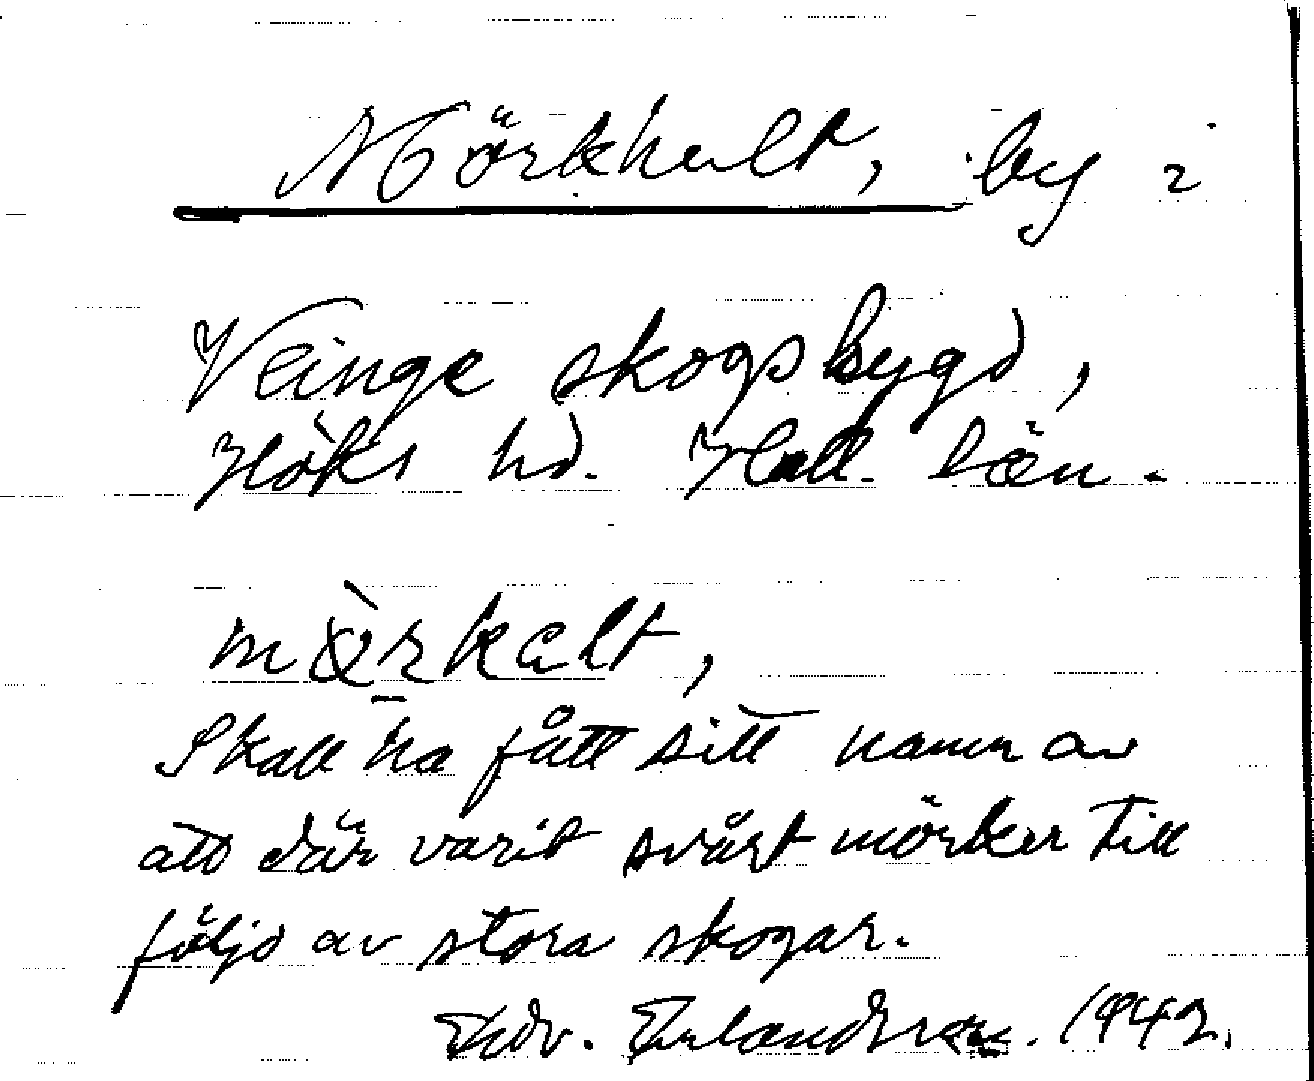 Mörkhult, by i
Veinge skogsbygd,
Höks hd. Hall. län.
mörkalt,
Skall ha fått sitt namn av
att där varit svårt mörker till
följd av stora skogar.
Edv. Erlandsson. 1942.